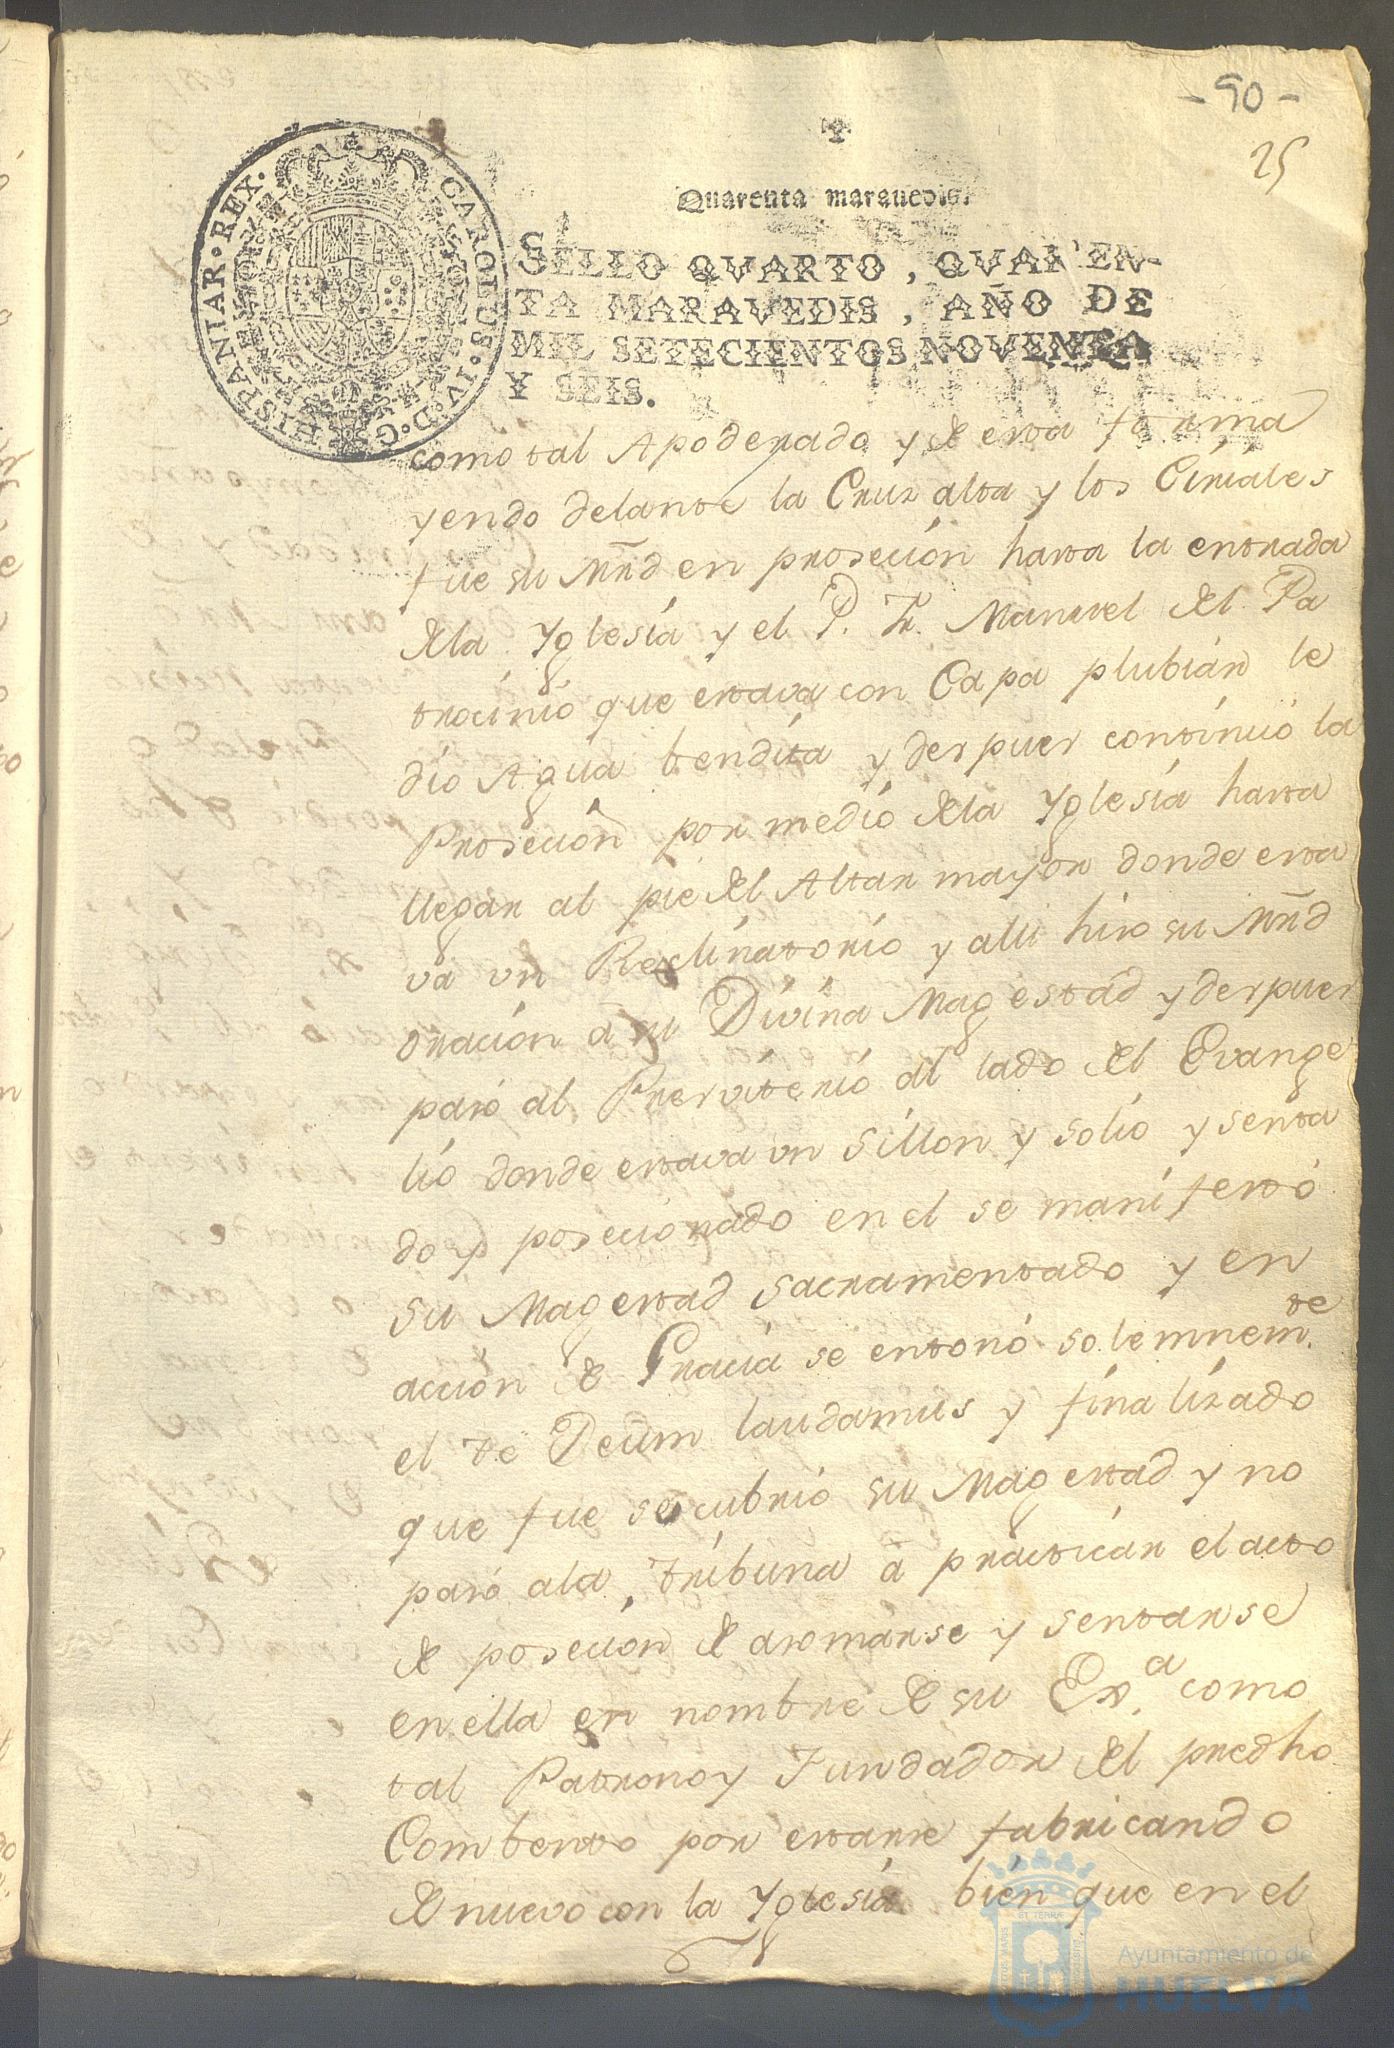 - 90 -
25
Quarenta maravedis.
SELLO QVARTO, QVAREN-
TA MARAVEDIS, AÑO DE
MIL SETECIENTOS NOVENTA
Y SEIS.
CAROLUS · IV · D · G · HISPANIAR · REX ·
como tal Apoderado y de esta forma
yendo delante la Cruz alta y los Ciriales
fue su Mrd en prosecion hasta la entrada
de la Yglesia y el P. Fr. Manuel del Pa
trocinio que estava con Capa plubian le
dio Agua bendita y despues continuó la
Prosecion por medio de la Yglesia hasta
llegar al pie del Altar mayor donde esta
va un Reclinatorio y alli hizo su Mrd
oracion a su Divina Magestad y despues
pasó al Presviterio al lado del Evange
lio donde estava un Sillon y Solio y senta
do y posecionado en el se manifestó
su Magestad Sacramentado y en
accion de Gracia se entonó solemnem.te
el te Deum laudamus y finalizado
que fue se cubrio su Magestad y no
pasó a la tribuna a practicar el acto
de posecion de asomarse y sentarse
en ella en nombre de su Ex.a como
tal Patrono y Fundador del predho
Combento por estarse fabricando
de nuevo con la Yglesia bien que en el
Ayuntamiento de
HUELVA